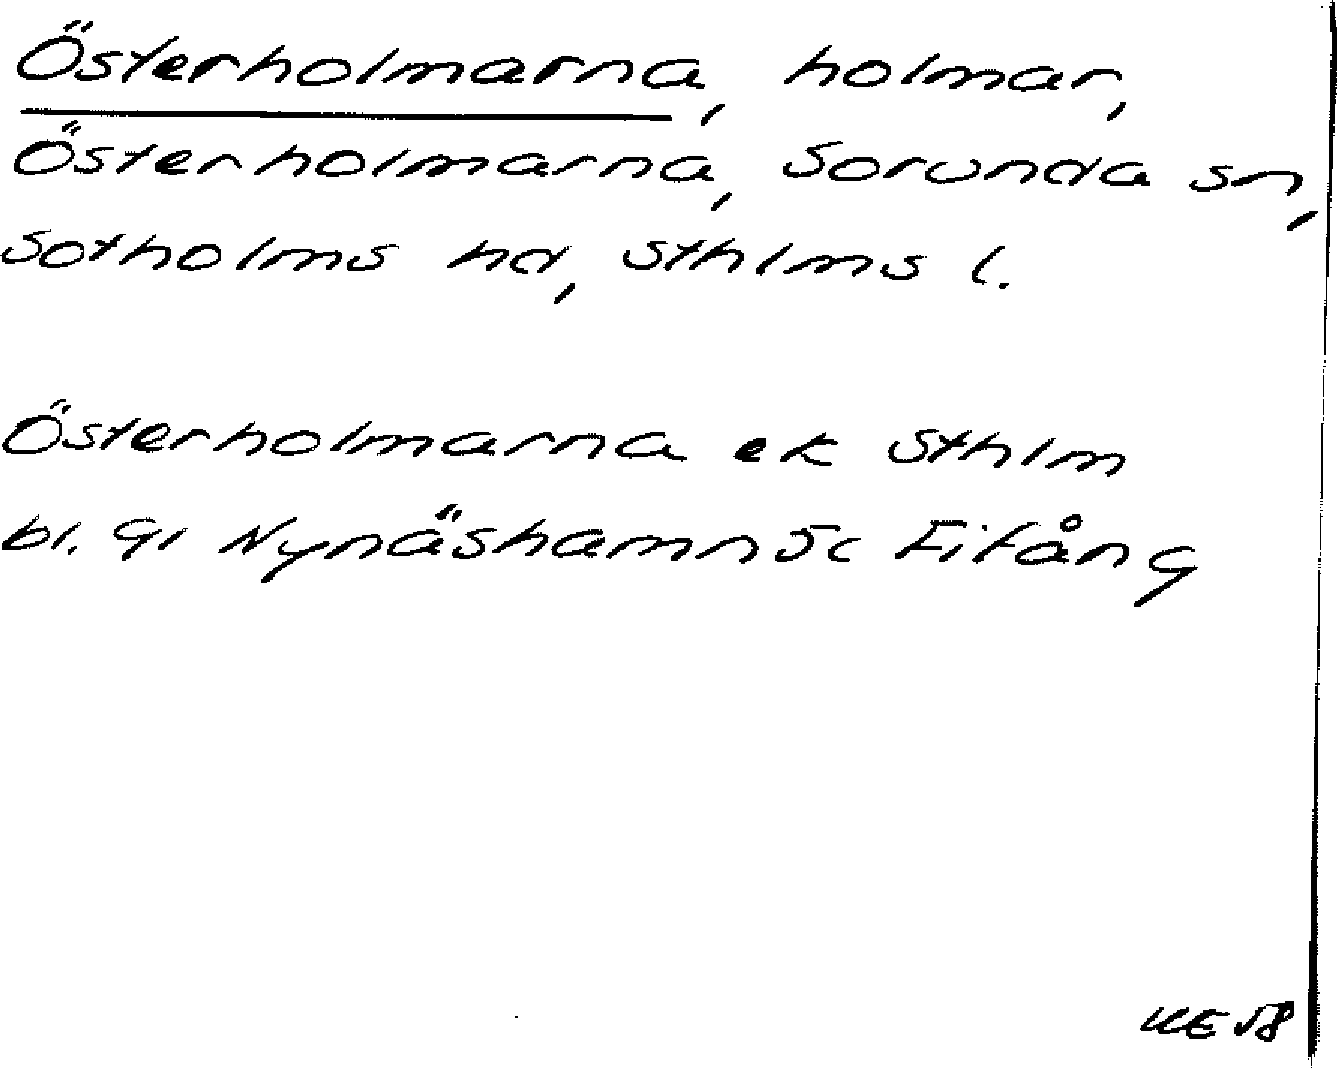 Österholmarna, holmar,
Österholmarna, Sorunda sn,
Sotholms hd, Sthlms l.
Österholmarna ek Sthlm
bl. 91 Nynäshamn 5c Fifång
KE 58